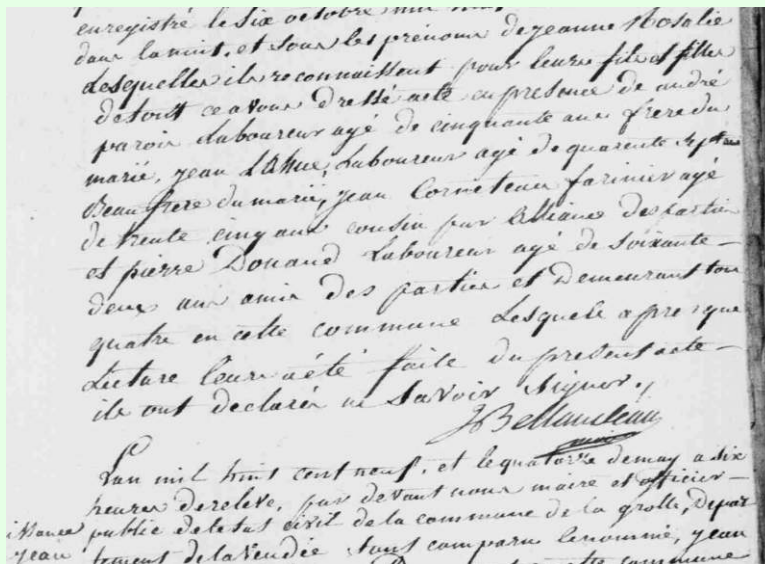 enregistré le six octobre mil huit
dans la nuit, et sous les prénoms de jeanne Rosalie
Lesquelles ils reconnaissent pour leurs fils et filles
de tout ce avons dressé acte en presence de andré
parois Laboureur agé de cinquante ans frere du
marié, jean Laboureur agé de quarente sept ans
Beau frere du marié, jean Corneteau farinier agé
de trente cinq ans cousin par alliance des parties
et pierre Douand Laboureur agé de soixante
deux ans amis des parties et Demeurant tous
quatre en cette commune Lesquels apres que
Lecture leur a été faite du present acte
ils ont declarés ne Savoir Signer.
L'an mil huit cent neuf, et le quatorze de may a six
heures de relevé, par devant nous maire et officier
public de letat civil de la commune de la grolle, Depar
tement de la Vendée, sont comparu le nommé, jean
cette commune
issance
jean